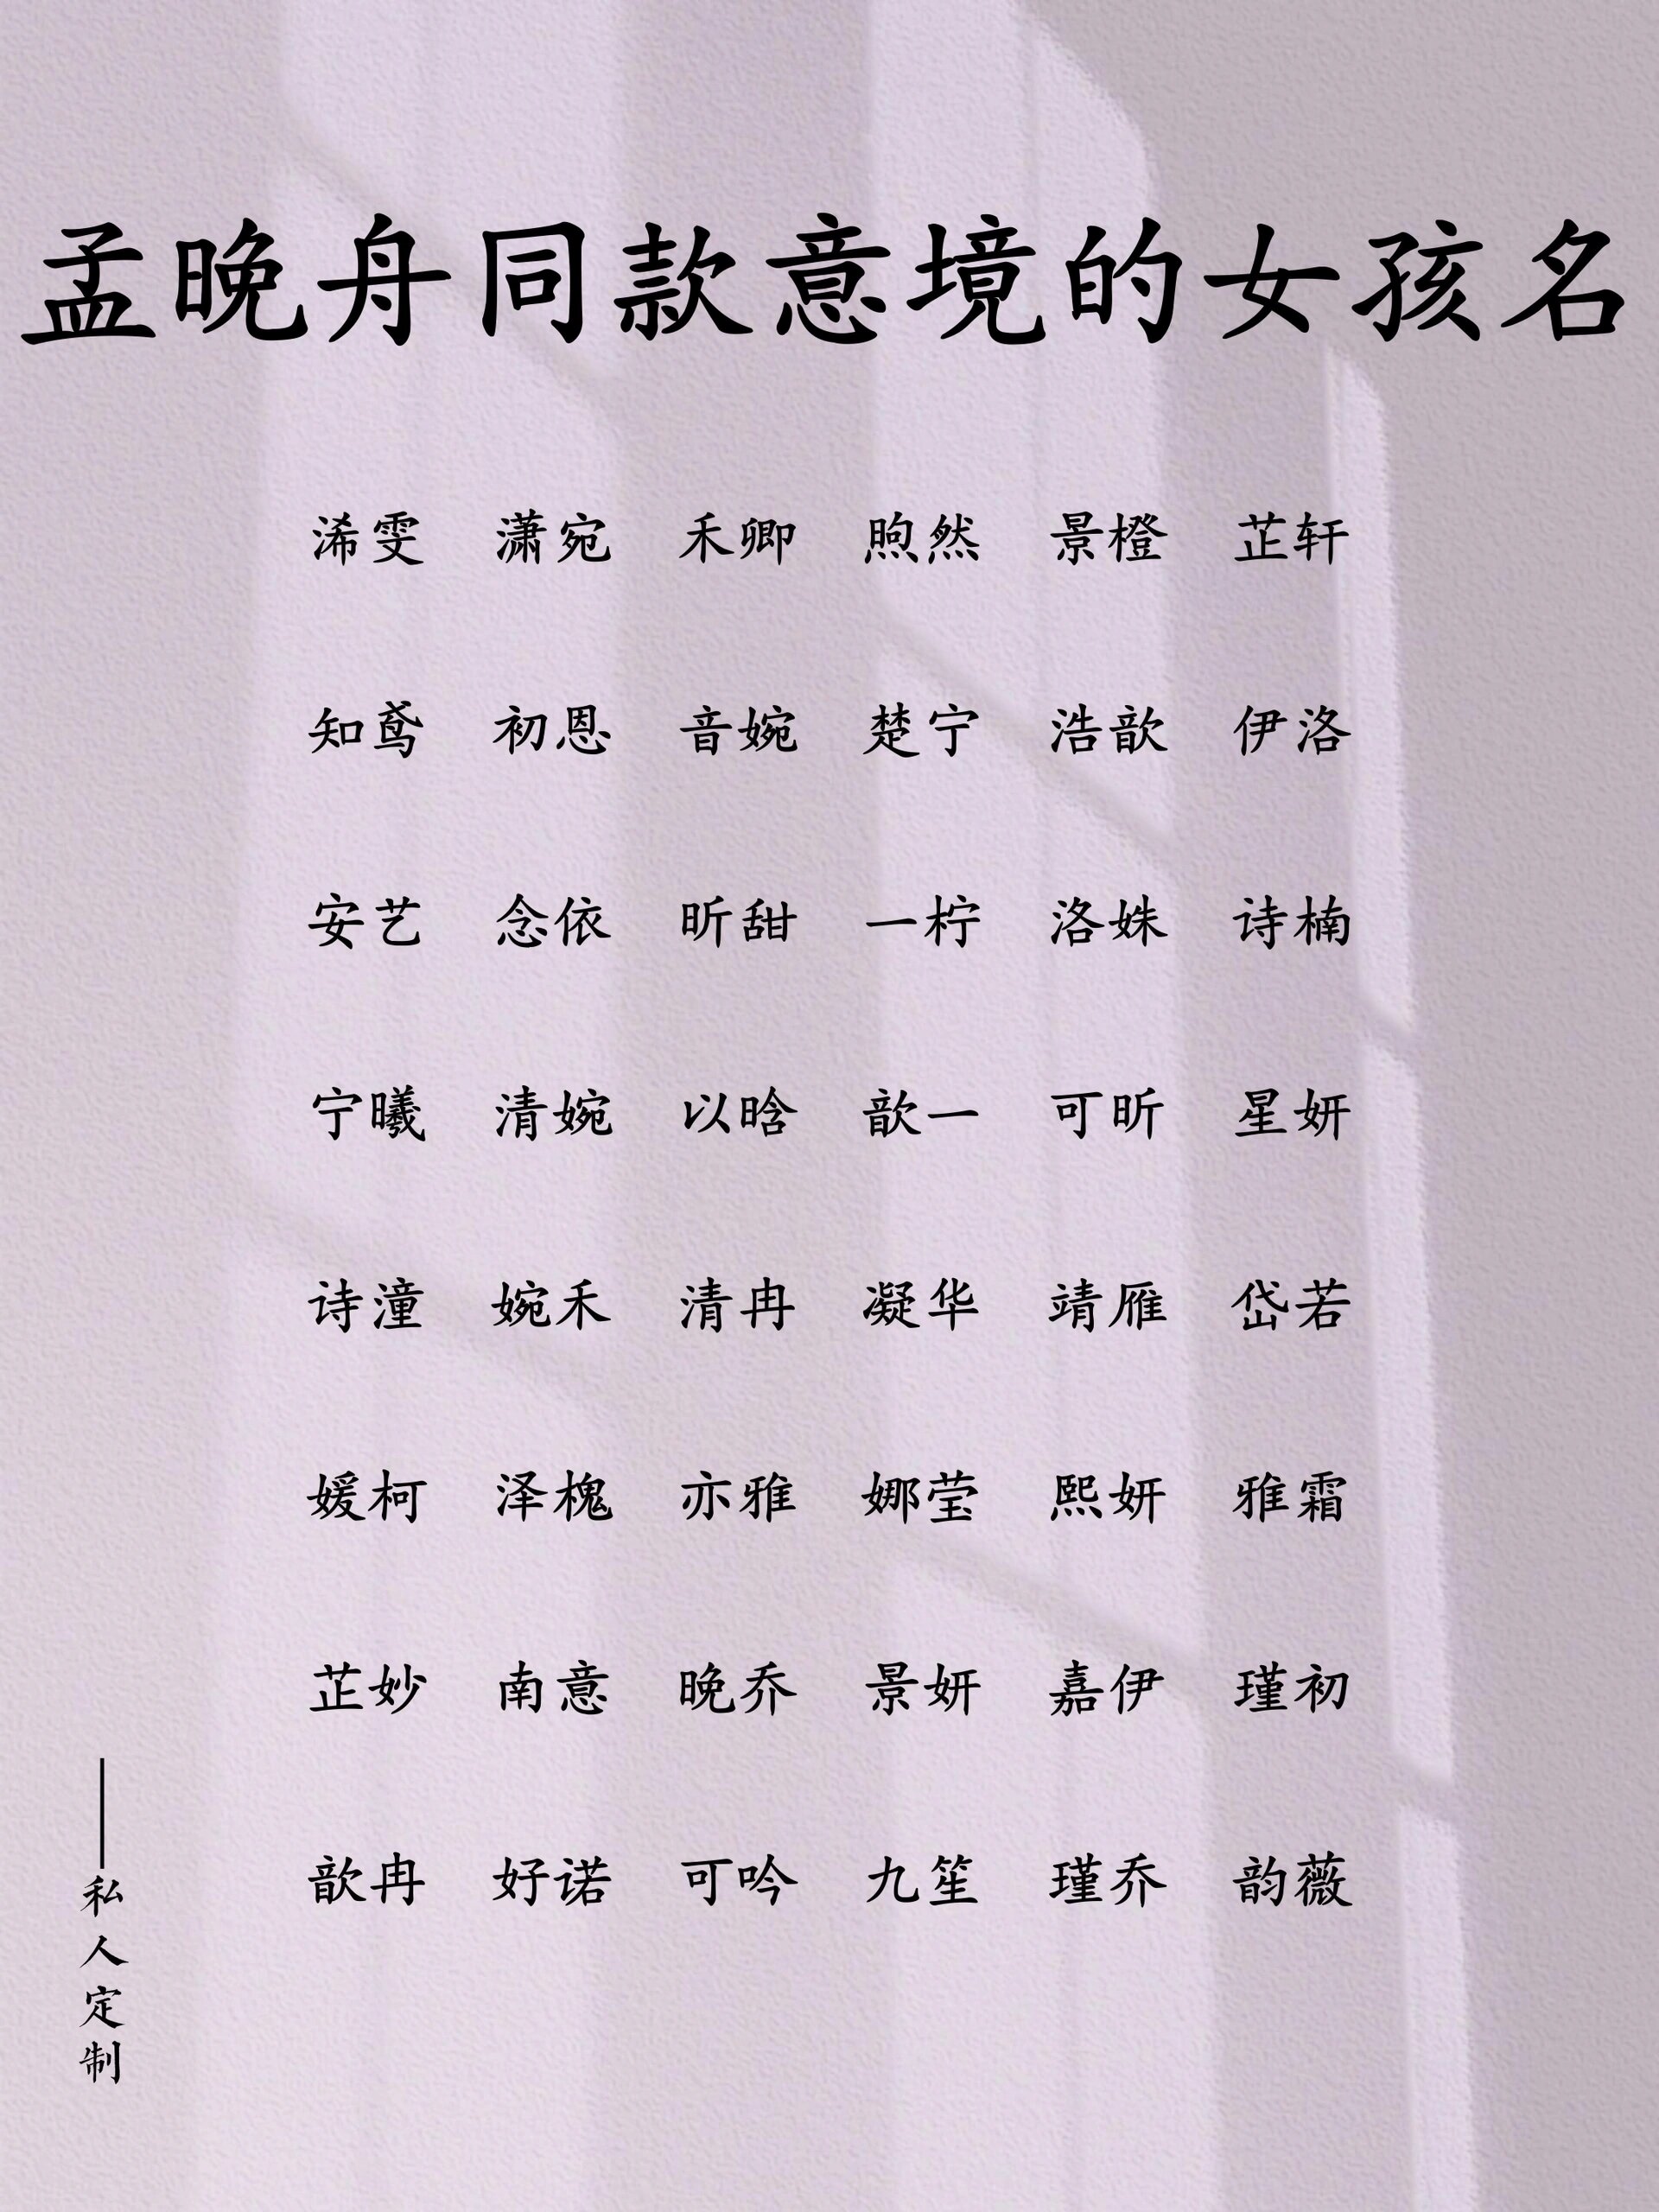 孟晚舟同款意境的女孩名
浠雯 潇宛 禾卿 煦然 景橙 芷轩
知鸢 初恩 音婉 楚宁 浩歆 伊洛
安艺 念依 昕甜 一柠 洛姝 诗楠
宁曦 清婉 以晗 歆一 可昕 星妍
诗潼 婉禾 清冉 凝华 靖雁 岱若
媛柯 泽槐 亦雅 娜莹 熙妍 雅霜
芷妙 南意 晚乔 景妍 嘉伊 瑾初
歆冉 好诺 可吟 九笙 瑾乔 韵薇
——私人定制